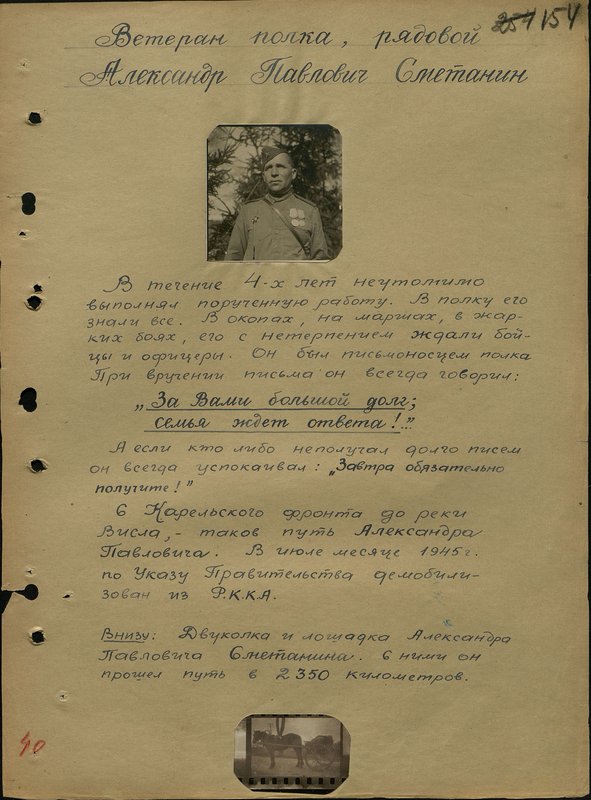 154
Ветеран полка, рядовой
Александр Павлович Сметанин
В течение 4-х лет неутомимо
выполнял порученную работу. В полку его
знали все. В окопах, на маршах, в жар-
ких боях, его с нетерпением ждали бой-
цы и офицеры. Он был письмоносцем полка
При вручении письма он всегда говорил:
„За Вами большой долг;
семья ждет ответа!..."
А если кто либо неполучал долго писем
он всегда успокаивал: „Завтра обязательно
получите!"
С Карельского фронта до реки
Висла,- таков путь Александра
Павловича. В июле месяце 1945г.
по Указу Правительства демобили-
зован из Р.К.К.А.
Внизу: Двуколка и лошадка Александра
Павловича Сметанина. С ними он
прошел путь в 2350 километров.